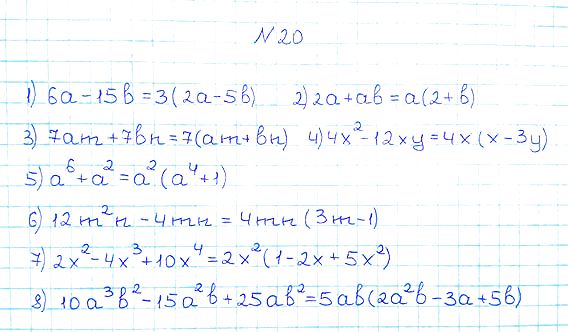 № 20
1) 6a - 15b = 3(2a - 5b) 2) 2a + ab = a(2 + b)
3) 7am + 7bn = 7(am + bn) 4) 4x² - 12xy = 4x(x - 3y)
5) a⁶ + a² = a²(a⁴ + 1)
6) 12m²n - 4mn = 4mn(3m - 1)
7) 2x² - 4x³ + 10x⁴ = 2x²(1 - 2x + 5x²)
8) 10a³b² - 15a²b + 25ab² = 5ab(2a²b - 3a + 5b)